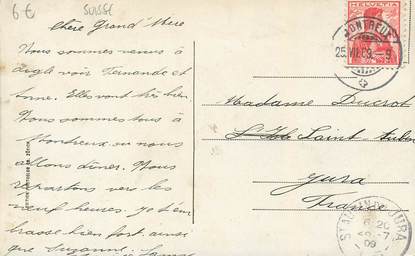 6€
SUISSE
Chère Grand'Mère
Nous sommes venus à
Aigle voir Fernande et
Elles vont très bien.
Nous sommes tous à
Montreux où nous
allons dîner. Nous
repartons vers les
neuf heures. Je t'em
brasse bien fort, ainsi
que Suzanne.
HELVETIA
MONTREUX
25.VII.09.-9
Madame Ducrot
Saint
Jura
France